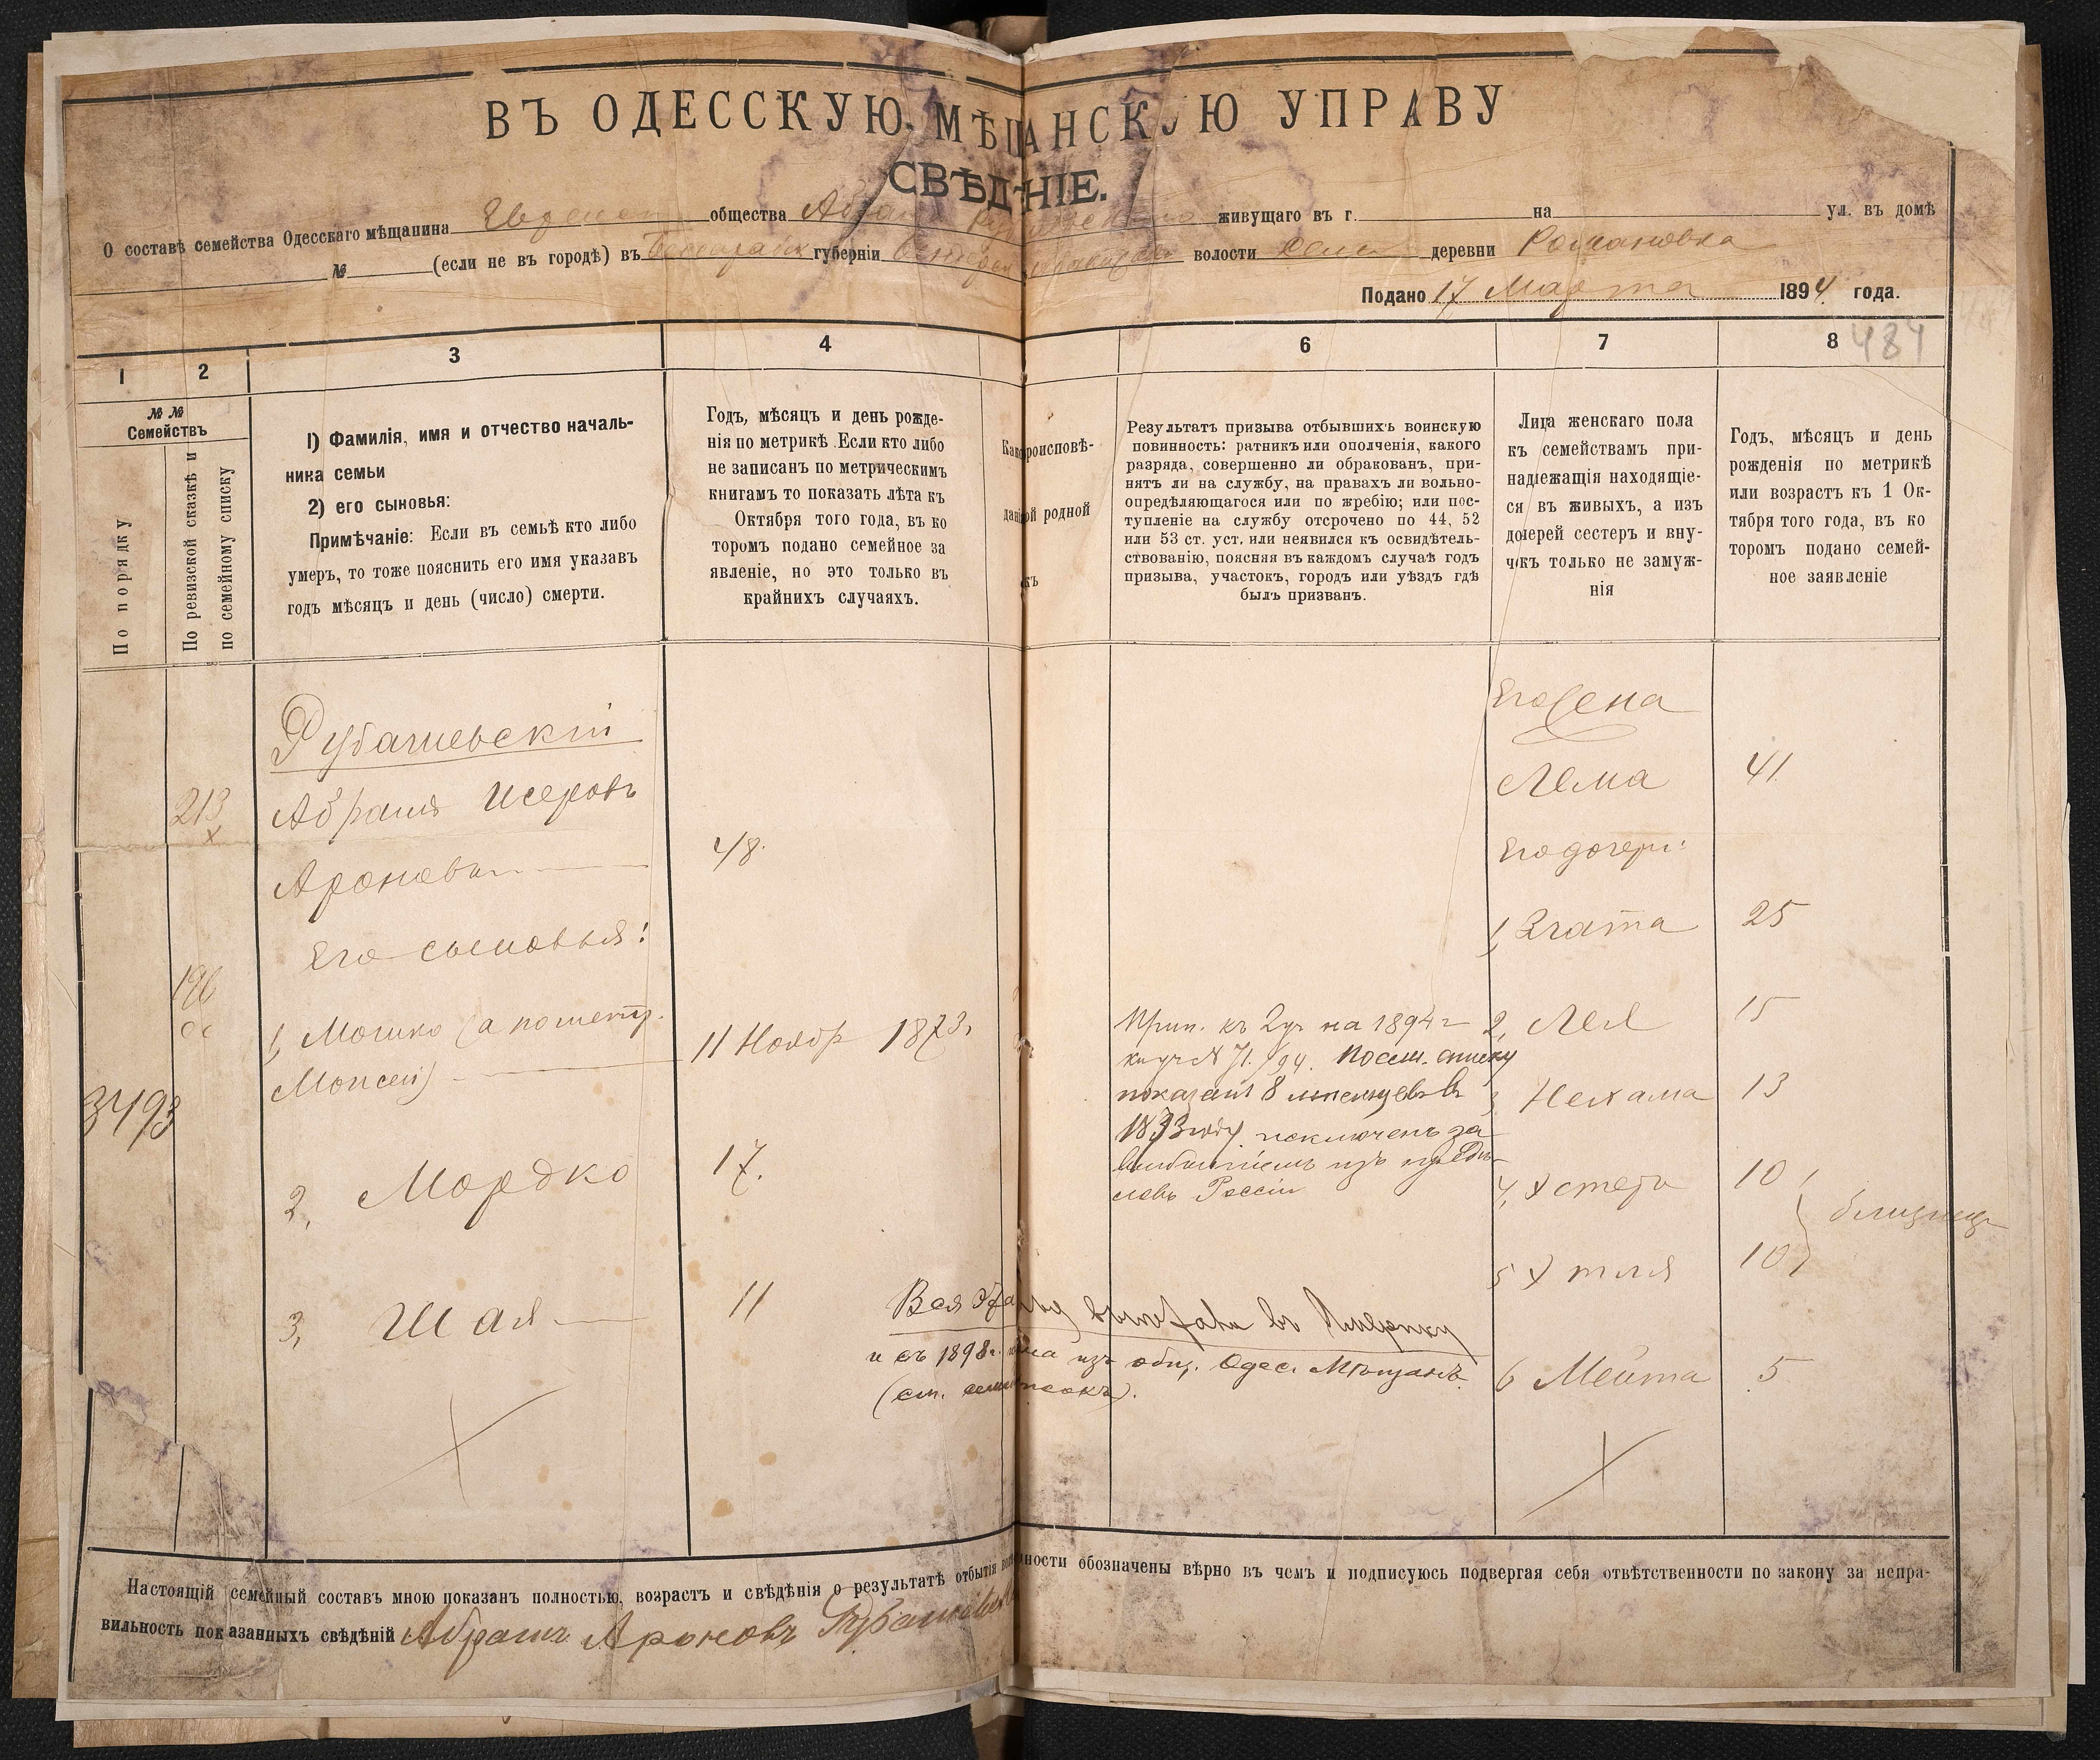 ВЪ ОДЕССКУЮ МѢЩАНСКУЮ УПРАВУ
СВѢДѢНІЕ.
О составѣ семейства Одесскаго мѣщанина общества живущаго въ г. на ул. въ домѣ
№ (если не въ городѣ) въ губерніи волости деревни Романовка
Подано 17 Марта 1894 года.
1 2 3 4 6 7 8 484
№ №
Семействъ
По порядку
По ревизской сказкѣ и
по семейному списку
1) Фамилія, имя и отчество началь-
ника семьи
2) его сыновья:
Примѣчаніе: Если въ семьѣ кто либо
умеръ, то тоже пояснить его имя указавъ
годъ мѣсяцъ и день (число) смерти.
Годъ, мѣсяцъ и день рожде-
нія по метрикѣ. Если кто либо
не записанъ по метрическимъ
книгамъ то показать лѣта къ
Октября того года, въ ко
торомъ подано семейное за
явленіе, но это только въ
крайнихъ случаяхъ.
роисповѣ-
ой родной
Результатъ призыва отбывшихъ воинскую
повинность: ратникъ или ополченія, какого
разряда, совершенно ли обракованъ, при-
нятъ ли на службу, на правахъ ли вольно-
опредѣляющагося или по жребію; или пос-
тупленіе на службу отсрочено по 44, 52
или 53 ст. уст. или неявился къ освидѣтель-
ствованію, поясняя въ каждомъ случаѣ годъ
призыва, участокъ, городъ или уѣздъ гдѣ
былъ призванъ.
Лица женскаго пола
къ семействамъ при-
надлежащія находящіе-
ся въ живыхъ, а изъ
дочерей сестеръ и вну-
чекъ только не замуж-
нія
Годъ, мѣсяцъ и день
рожденія по метрикѣ
или возрастъ къ 1 Ок-
тября того года, въ ко
торомъ подано семей-
ное заявленіе
Рубашевскій
213
х
Абрамъ Исеровъ
Ароновъ 48.
Его сыновья:
196
1, Мошко (а по метр.
Моисей) 11 Ноябр 1873г
3493
2, Мордко 17.
3, Шая 11
Прип. къ 2 уч на 1894 г
показанъ 8
1893 году исключенъ за
Россіи
Вся выехали въ Америку
и съ 1898 г. изъ общ. Одес. Мѣщанъ.
Его жена
Лема 41.
Его дочери:
1, Злата 25
2, Лея 15
3, Нехама 13
4, Хстера 10
близнец
5 Хтля 10
6 Мейта 5
Настоящій семейный составъ мною показанъ полностью, возрастъ и свѣдѣнія о результатѣ отбытія ности обозначены вѣрно въ чемъ и подписуюсь подвергая себя отвѣтственности по закону за непра-
вильность показанныхъ свѣдѣній Абрамъ Ароновъ